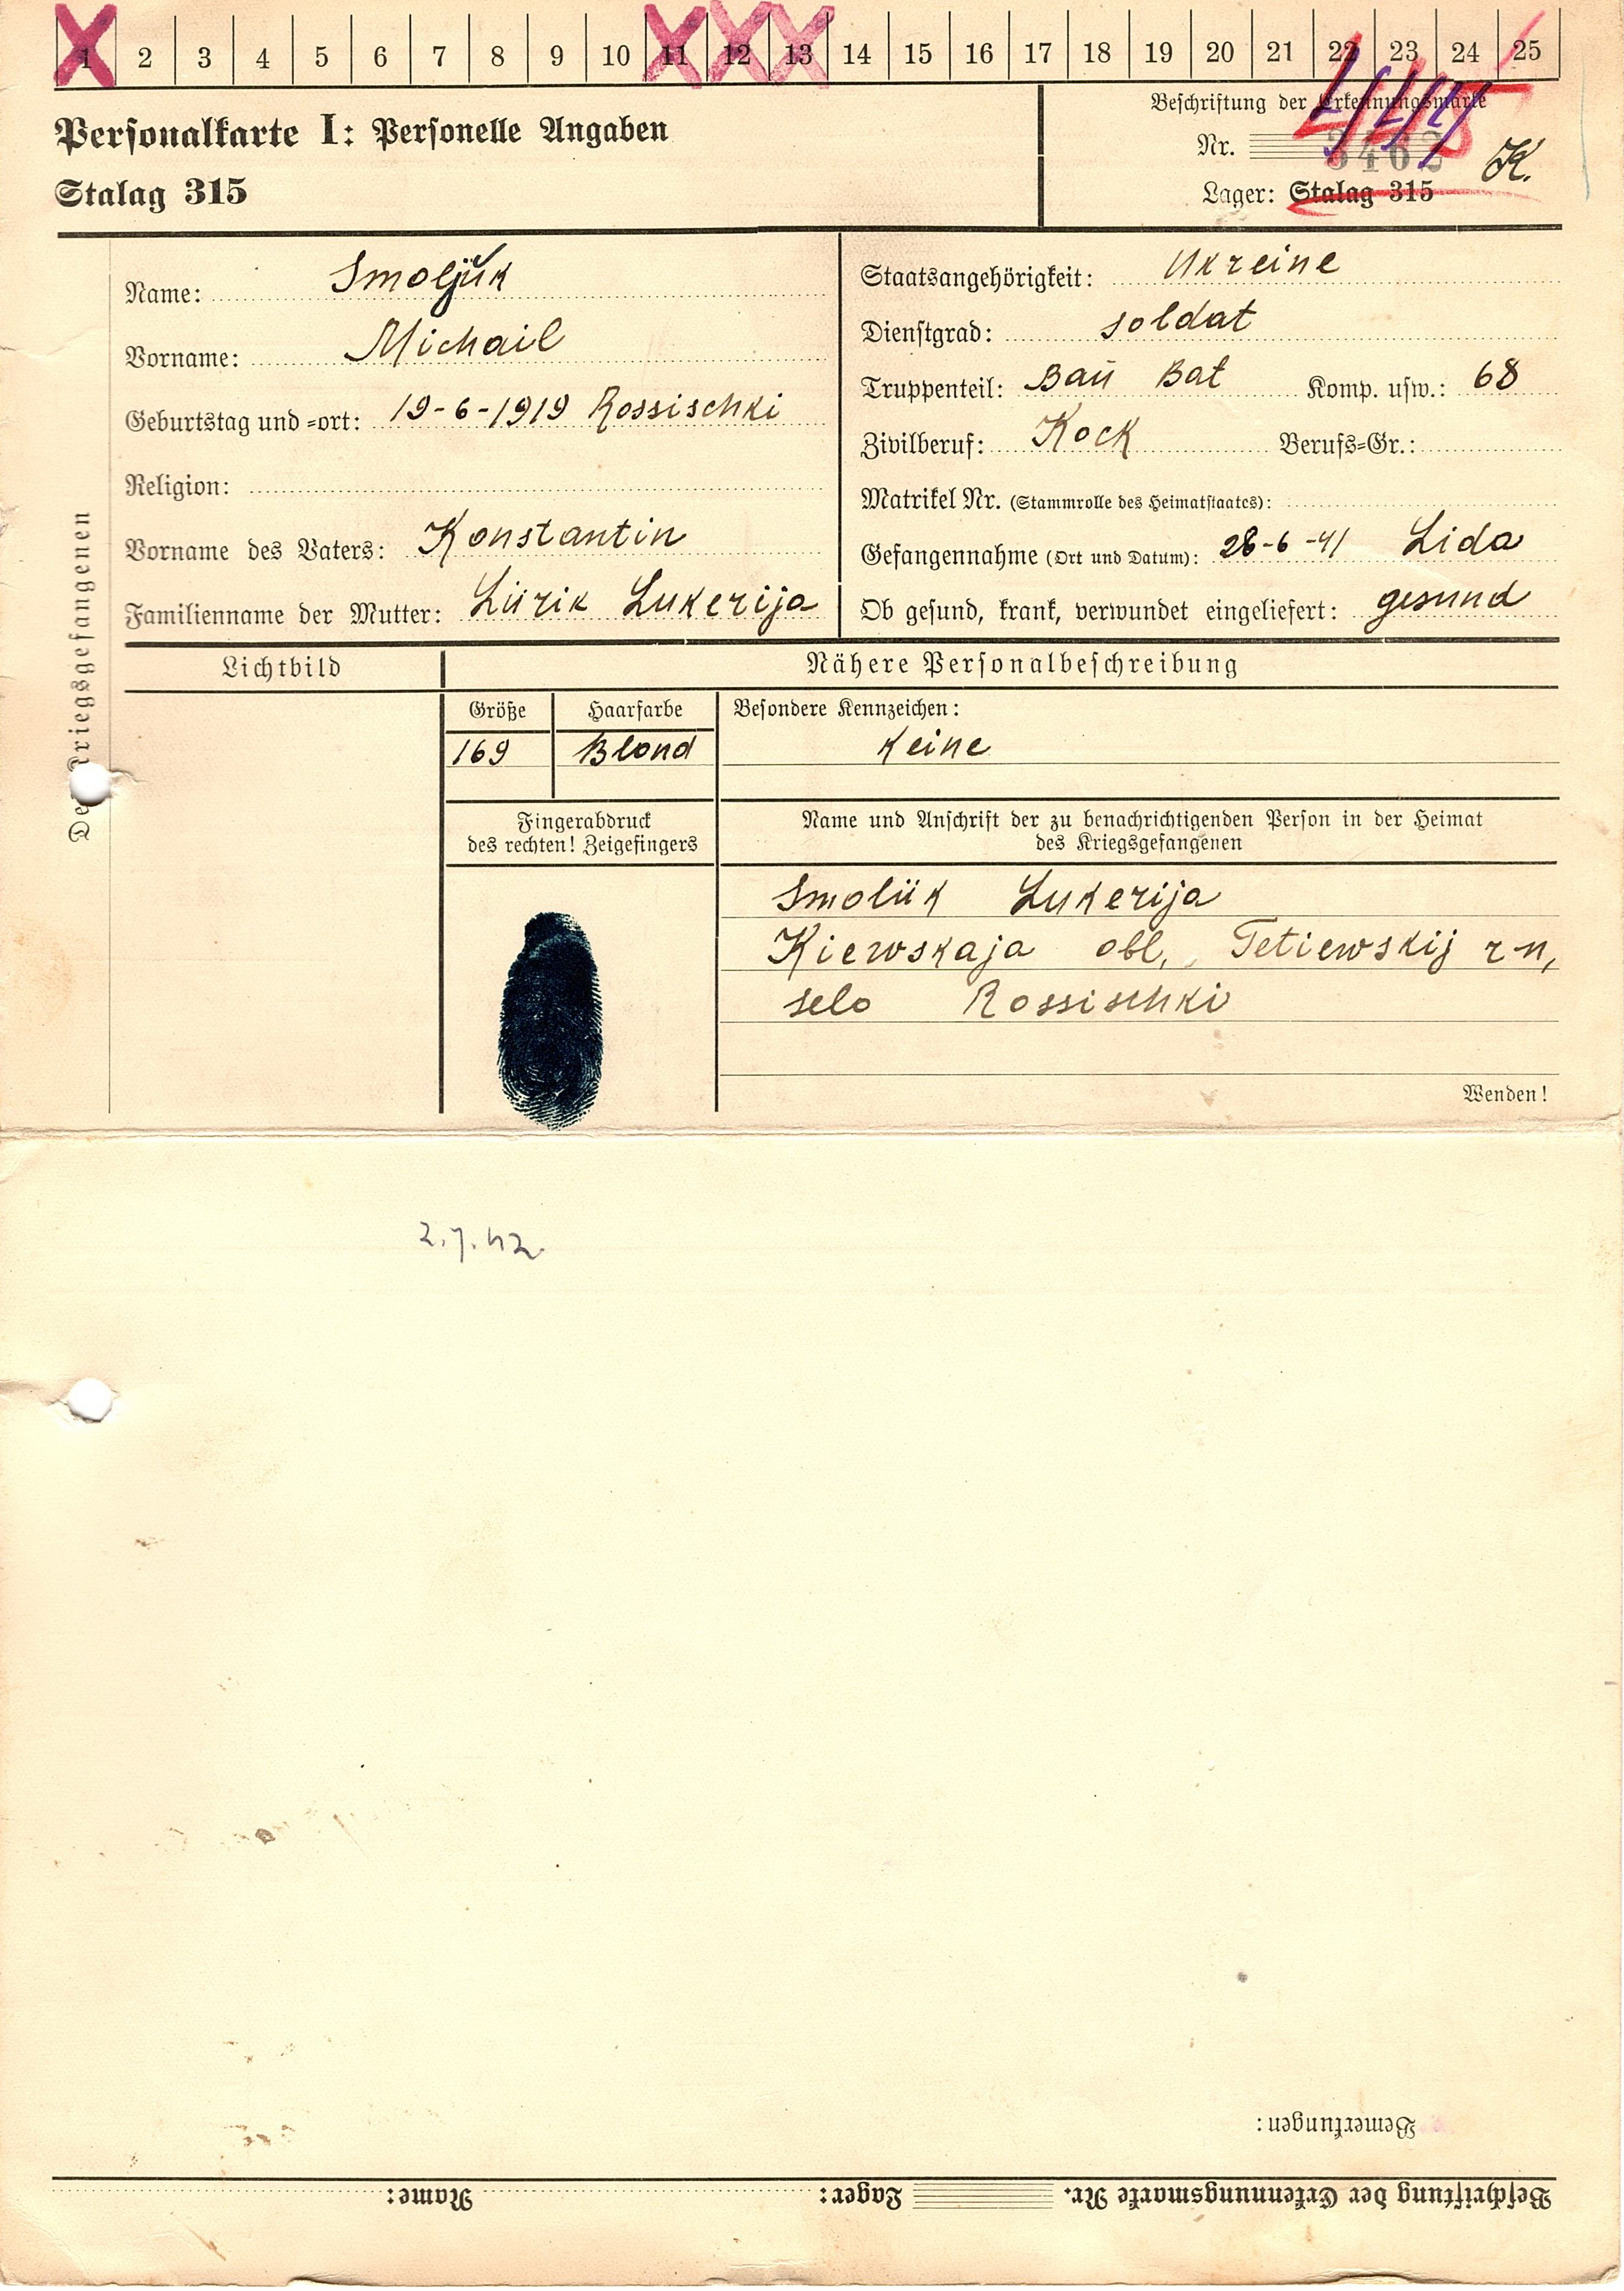 1 2 3 4 5 6 7 8 9 10 11 12 13 14 15 16 17 18 19 20 21 22 23 24 25
Personalkarte I: Personelle Angaben
Stalag 315
Beschriftung der Erkennungsmarke
Nr. 3462 K.
Lager: Stalag 315
Des Kriegsgefangenen
Name: Smoljuk
Vorname: Michail
Geburtstag und =ort: 19-6-1919 Rossischki
Religion:
Vorname des Vaters: Konstantin
Familienname der Mutter: Lürik Lukerija
Staatsangehörigkeit: Ukreine
Dienstgrad: soldat
Truppenteil: Baŭ Bat Komp. usw.: 68
Zivilberuf: Kock Berufs=Gr.:
Matrikel Nr. (Stammrolle des Heimatstaates):
Gefangennahme (Ort und Datum): 28-6-41 Lida
Ob gesund, krank, verwundet eingeliefert: gesund
Lichtbild
Nähere Personalbeschreibung
Größe Haarfarbe Besondere Kennzeichen:
169 Blond keine
Fingerabdruck
des rechten! Zeigefingers
Name und Anschrift der zu benachrichtigenden Person in der Heimat
des Kriegsgefangenen
Smolük Lukerija
Kiewskaja obl., Tetiewskij r-n,
selo Rossischki
Wenden!
2.7.42.
Bemerkungen:
Beschriftung der Erkennungsmarke Nr. Lager: Name: